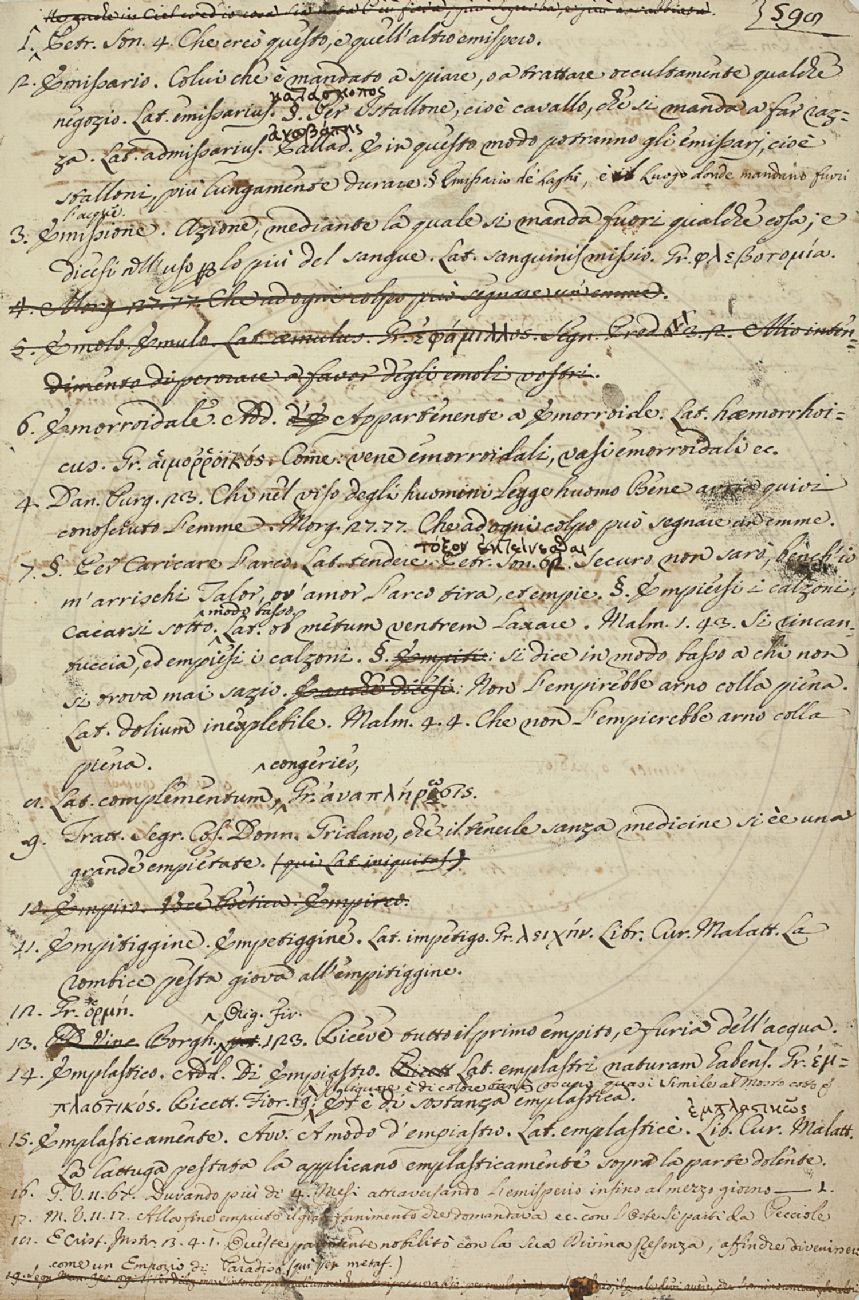 599
1. Petr. Son. 4. Che creò questo, e quell'altro emispero.
2. Emissario. Colui che è mandato a spiare, o a trattare occultamente qualche
κατάσκοπος
negozio. Lat. emissarius. §. Per istallone, cioè cavallo, che si manda a far raz=
ἀναβάτης
za. Lat. admissarius. Pallad. E in questo modo potranno gli emissarj, cioè
stalloni, più lungamente durare. § Emissario de' Laghi, è luogo donde mandano fuori
l'acque.
3. Emissione. Azione, mediante la quale si manda fuori qualche cosa; e
dicesi nell'uso per lo più del sangue. Lat. sanguinis missio. Gr. φλεβοτομία.
4. Morg. 27.77. Che ad ogni colpo può segnare un emme.
5. Emolo, Emulo. Lat. æmulus. Gr. ἐφάμιλλος. Segn. Pred. 3.2. Mio inten=
dimento di perorare a favor degli emoli vostri.
6. Emorroidale. Add. Appartenente a Emorroide. Lat. hæmorrhoi=
cus. Gr. αἱμοῤῥοϊκός. Come: vene emorroidali, vasi emorroidali ec.
4. Dan. Purg. 23. Chi nel viso degli huomini legge huomo Bene avria quivi
conosciuto l'emme. Morg. 27.77. Che ad ogni colpo può segnare un emme.
τόξον ἐντείνεσθαι
7. §. Per Caricare l'arco. Lat. tendere. Petr. Son. 62. Securo non sarò, bench'io
m'arrischi Talor, ov'amor l'arco tira, ed empie. §. Empiersi i calzoni,
modo basso.
cacarsi sotto. Lat. ob metum ventrem laxare. Malm. 1.43. Si rincan=
tuccia, ed empiesi i calzoni. §. Empiti: si dice in modo basso a chi non
si trova mai sazio. Non l'empirebbe arno colla piena.
Lat. dolium inexplebile. Malm. 4.4. Che non l'empierebbe arno colla
piena.
congeries,
8. Lat. complementum, Gr. ἀναπλήρωσις.
9. Tratt. Segr. Cos. Donn. Gridano, che il tenerle sanza medicine si èe una
grande empietate. (qui Lat. iniquitas)
10. Empiro. Voce Poetica. Empireo.
11. Empitiggine. Empetiggine. Lat. impetigo. Gr. λειχήν. Libr. Cur. Malatt. La
rombice pesta giova all'empitiggine.
12. Gr. ὁρμή.
Orig. Fir.
13. Borgh. 123. Riceve tutto il primo empito, e furia dell'acqua.
14. Emplastico. Add. Di Empiastro. Lat. emplastri naturam habens. Gr. ἐμ=
πλαστικός. Ricett. Fior. 19. Et è di sostanza emplastica.
ἐμπλαστικῶς
15. Emplasticamente. Avv. A modo d'empiastro. Lat. emplasticè. Lib. Cur. Malatt.
La lattuga pestata la applicano emplasticamente sopra la parte dolente.
16. G.V. 11.67. Durando più di 4. Mesi attraversando l'emisperio infino al mezzo giorno — 1.
17. M.V. 11.17. Alla fine empiuto il fornimento che domandava ec. con l'Oste si partì da Peccioli
18. E Crist. Instr. 3.4.1. nobilitò con la sua Divina Presenza, affinchè divenisse
come un Emporio di Paradiso (qui per metaf.)